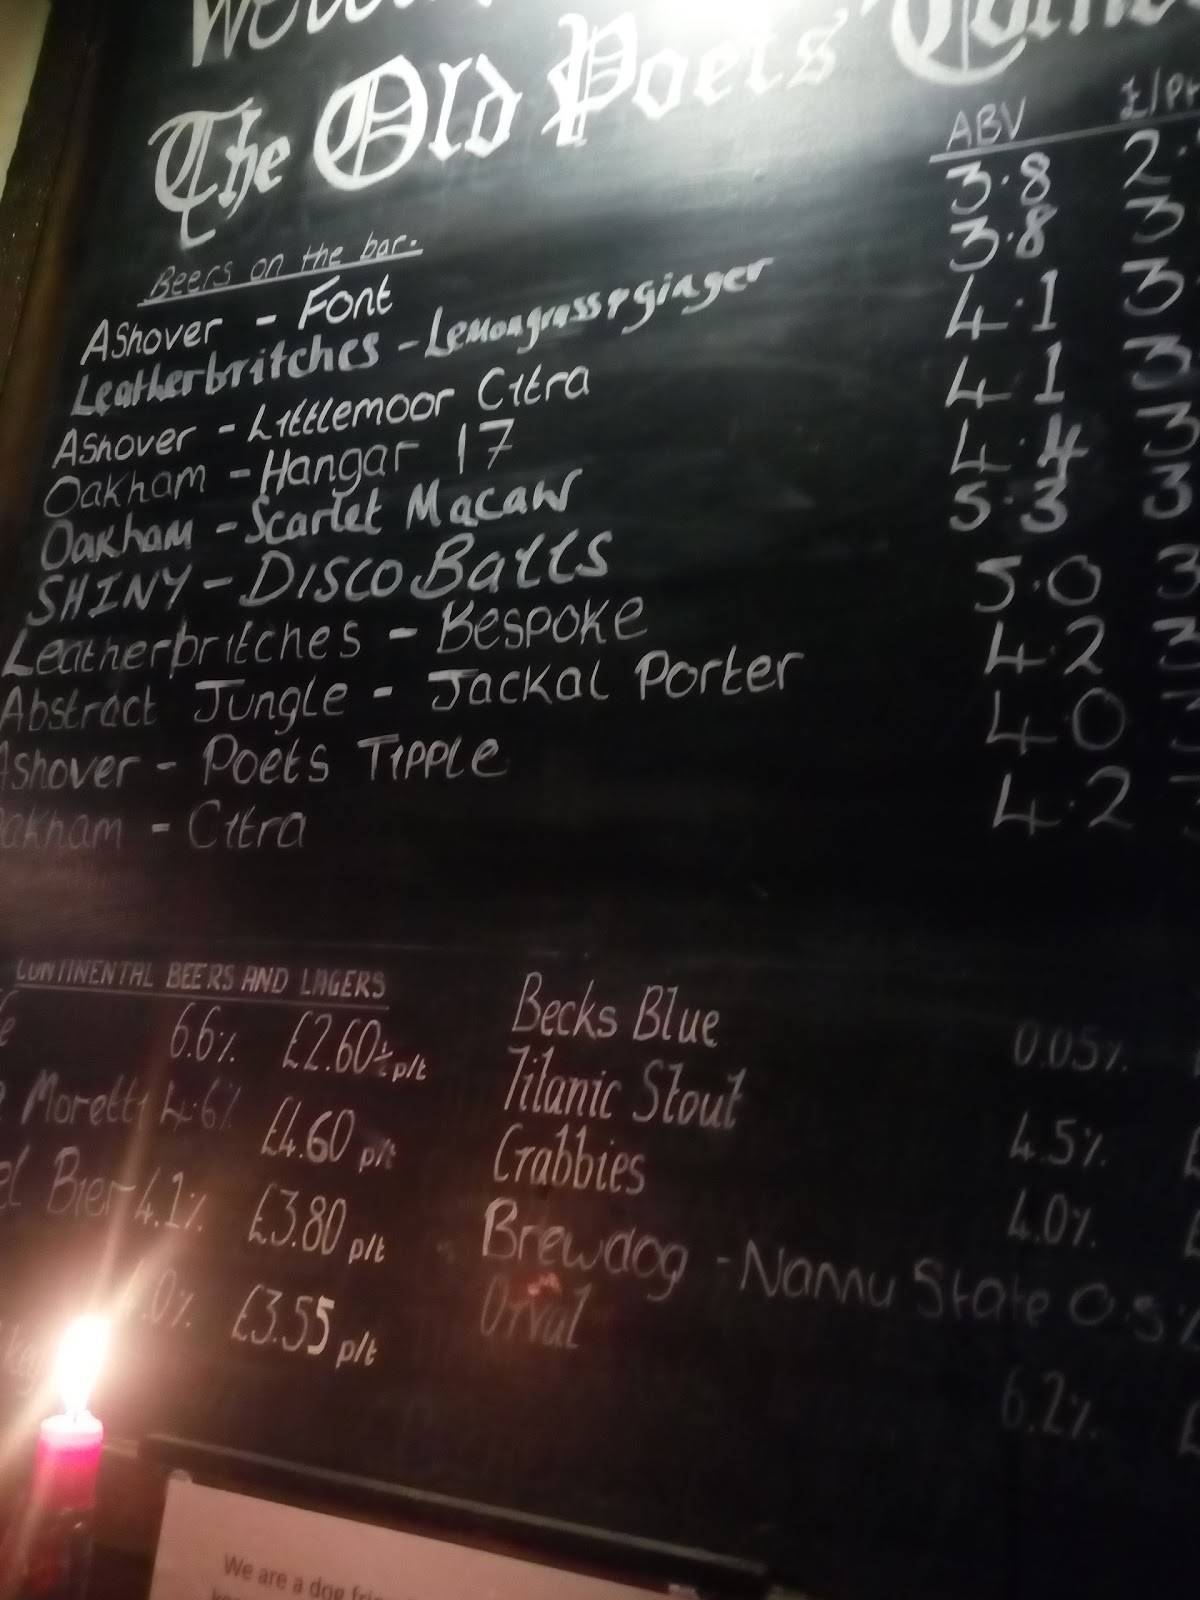 The Old Poets'
ABV
Beers on the bar.
Ashover - Font 3.8 2.
Leatherbritches - Lemongrass & ginger 3.8 3
Ashover - Littlemoor Citra 4.1 3.
Oakham - Hangar 17 4.1 3
Oakham - Scarlet Macaw 4.4 3
SHINY - DISCO Balls 5.3 3
Leatherbritches - Bespoke 5.0 3
Abstract Jungle - Jackal Porter 4.2 3
Ashover - Poets Tipple 4.0 3
Oakham - Citra 4.2
CONTINENTAL BEERS AND LAGERS
6.6% £2.60 ½ p/t
Moretti 4.6% £4.60 p/t
Bier 4.1% £3.80 p/t
£3.55 p/t
Becks Blue 0.05%
Titanic Stout 4.5% £
Crabbies 4.0% £
Brewdog - Nanny State 0.5%
Orval 6.2% £
We are a dog